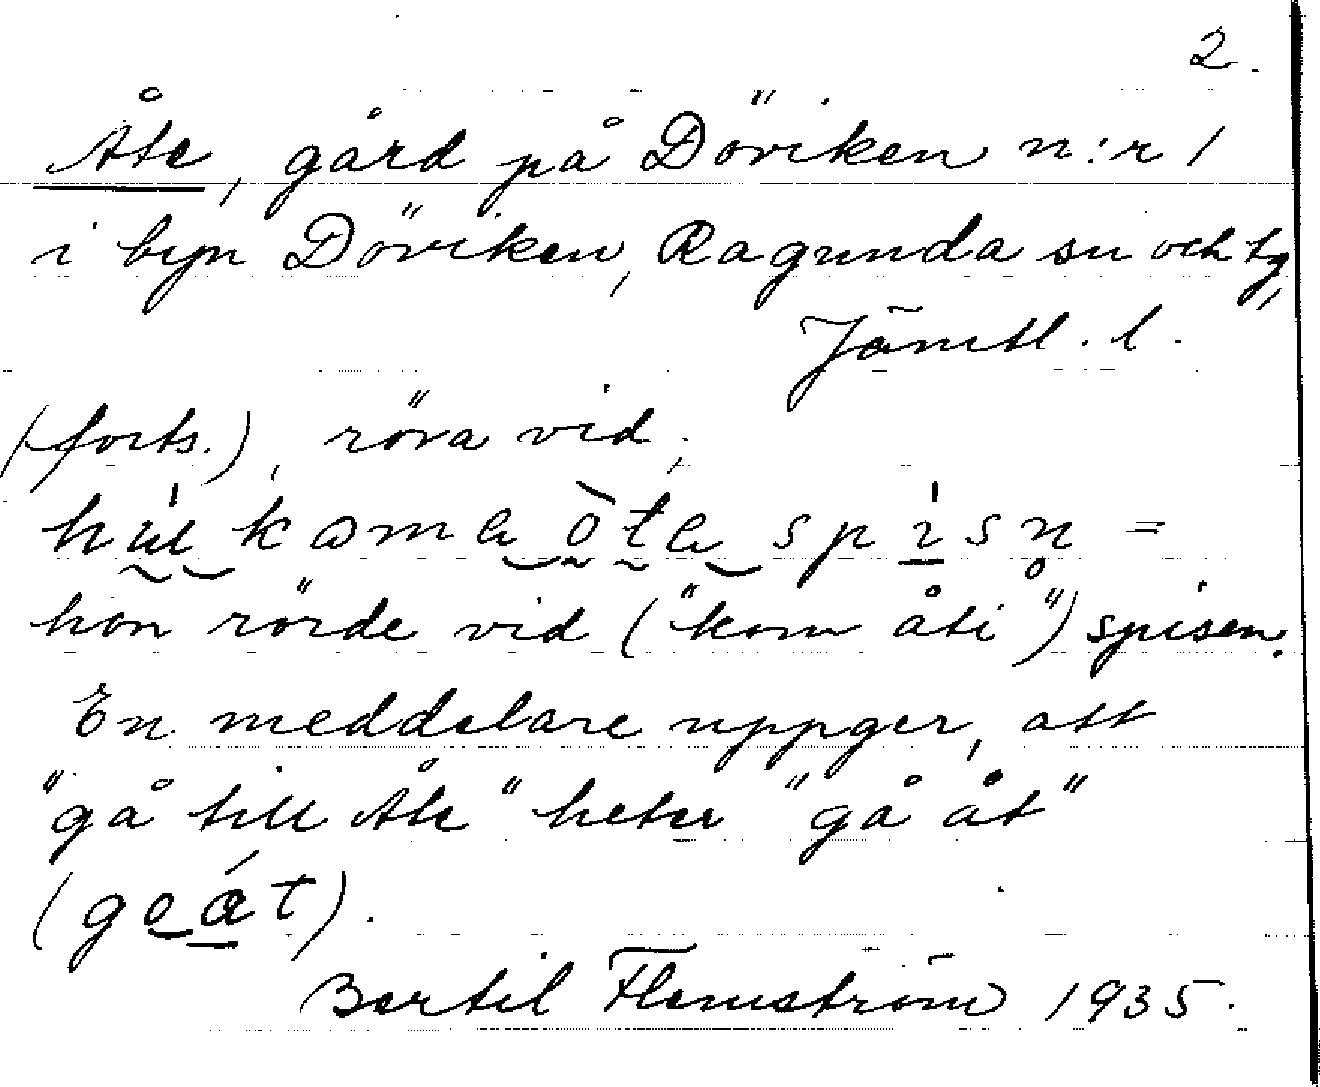 2.
Åte, gård på Döviken n:r 1
i byn Döviken, Ragunda sn och tg,
Jämtl. l.
(forts.), röra vid;
spisn =
hon rörde vid ("kom åti") spisen.
En meddelare uppger, att
"gå till Åte" heter "gå åt"
(goát).
Bertil Flemström 1935.